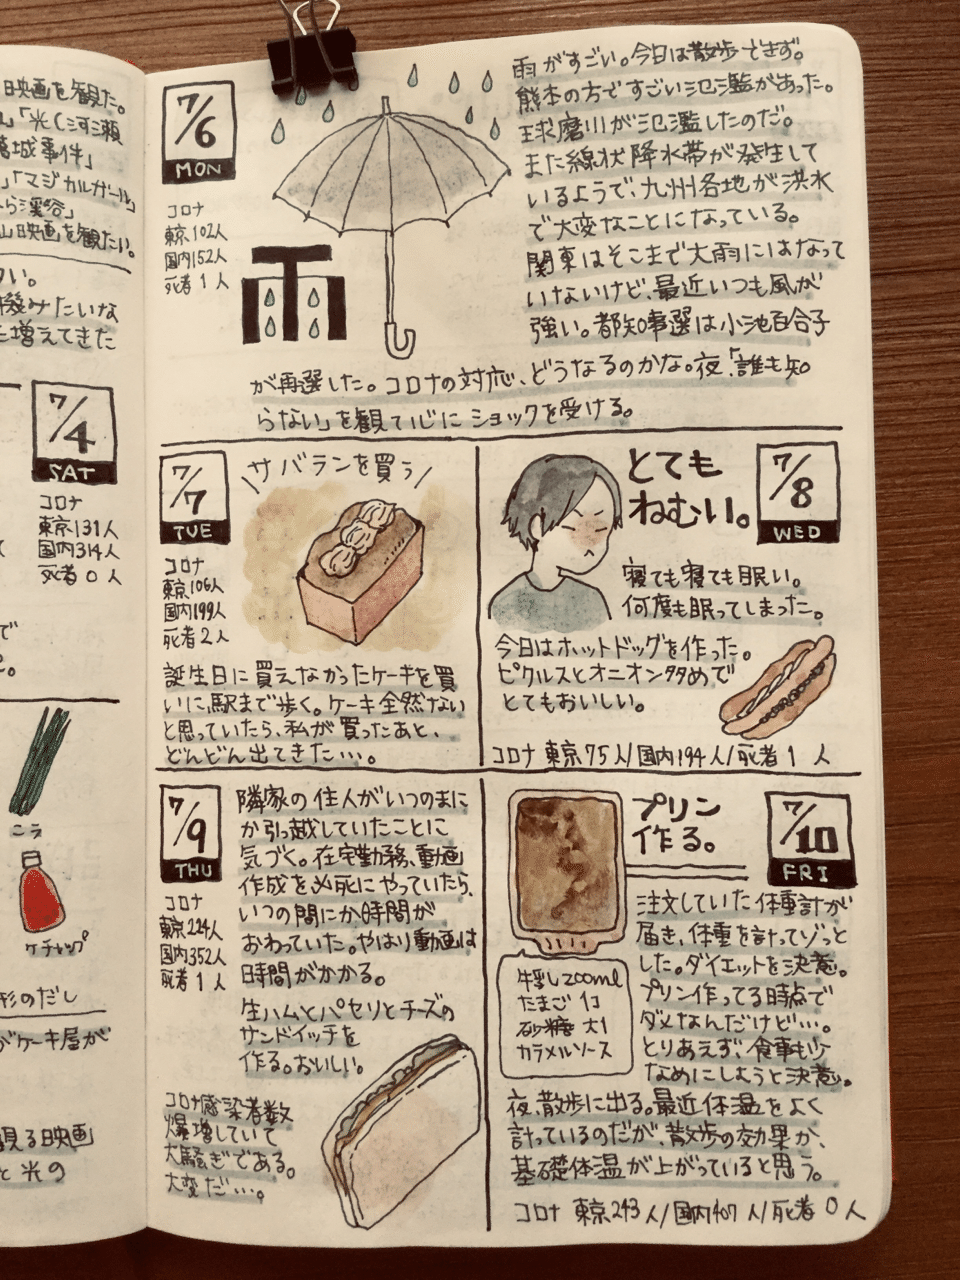 映画を観た。
」「光」河瀬
葛城事件」
」「マジカルガール」
ら渓谷」
山映画を観たい。
たい。
機みたいな
に増えてきた
7/4
SAT
コロナ
東京131人
国内314人
死者0人
で
ニラ
ケチャップ
形のだし
がケーキ屋が
観る映画
と光の
7/6
MON
コロナ
東京102人
国内152人
死者1人
雨
雨がすごい。今日は散歩できず。
熊本の方ですごい氾濫があった。
球磨川が氾濫したのだ。
また線状降水帯が発生して
いるようで、九州各地が洪水
で大変なことになっている。
関東はそこまで大雨にはなって
いないけど、最近いつも風が
強い。都知事選は小池百合子
が再選した。コロナの対応、どうなるのかな。夜、「誰も知
らない」を観て心にショックを受ける。
7/7
TUE
サバランを買う
コロナ
東京106人
国内199人
死者2人
誕生日に買えなかったケーキを買
いに、駅まで歩く。ケーキ全然ない
と思っていたら、私が買ったあと、
どんどん出てきた…。
7/8
WED
とても
ねむい。
寝ても寝ても眠い。
何度も眠ってしまった。
今日はホットドッグを作った。
ピクルスとオニオン多めで
とてもおいしい。
コロナ 東京75人/国内194人/死者1人
7/9
THU
コロナ
東京224人
国内352人
死者1人
隣家の住人がいつのまに
か引っ越していたことに
気づく。在宅勤務、動画
作成を必死にやっていたら、
いつの間にか時間が
おわっていた。やはり動画は
時間がかかる。
生ハムとパセリとチーズの
サンドイッチを
作る。おいしい。
コロナ感染者数
爆増していて
大騒ぎである。
大変だ…。
7/10
FRI
プリン
作る。
牛乳200ml
たまご 1コ
砂糖 大1
カラメルソース
注文していた体重計が
届き、体重を計ってゾッと
した。ダイエットを決意。
プリン作ってる時点で
ダメなんだけど…。
とりあえず、食事も少
なめにしようと決意。
夜、散歩に出る。最近体温をよく
計っているのだが、散歩の効果か、
基礎体温が上がっていると思う。
コロナ 東京243人/国内407人/死者0人